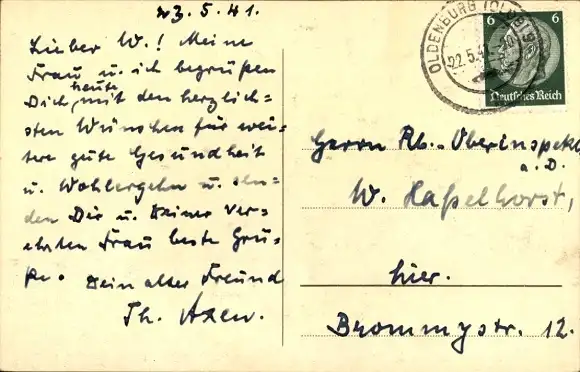 23.5.41.
Lieber W.! Meine
Frau u. ich begrüßen
heute
Dich, mit den herzlich=
sten Wünschen für wei=
tere gute Gesundheit
u. Wohlergehn u. sen=
den Dir u. Deiner ver=
ehrten Frau beste Grü=
ße. Dein alter Freund
Th. Axen.
OLDENBURG (OLDB)
22.5.41
6 6
Deutsches Reich
Herrn Rb.-Oberinspekt
a.D.
W. Haßelhorst,
hier.
Brommystr. 12.